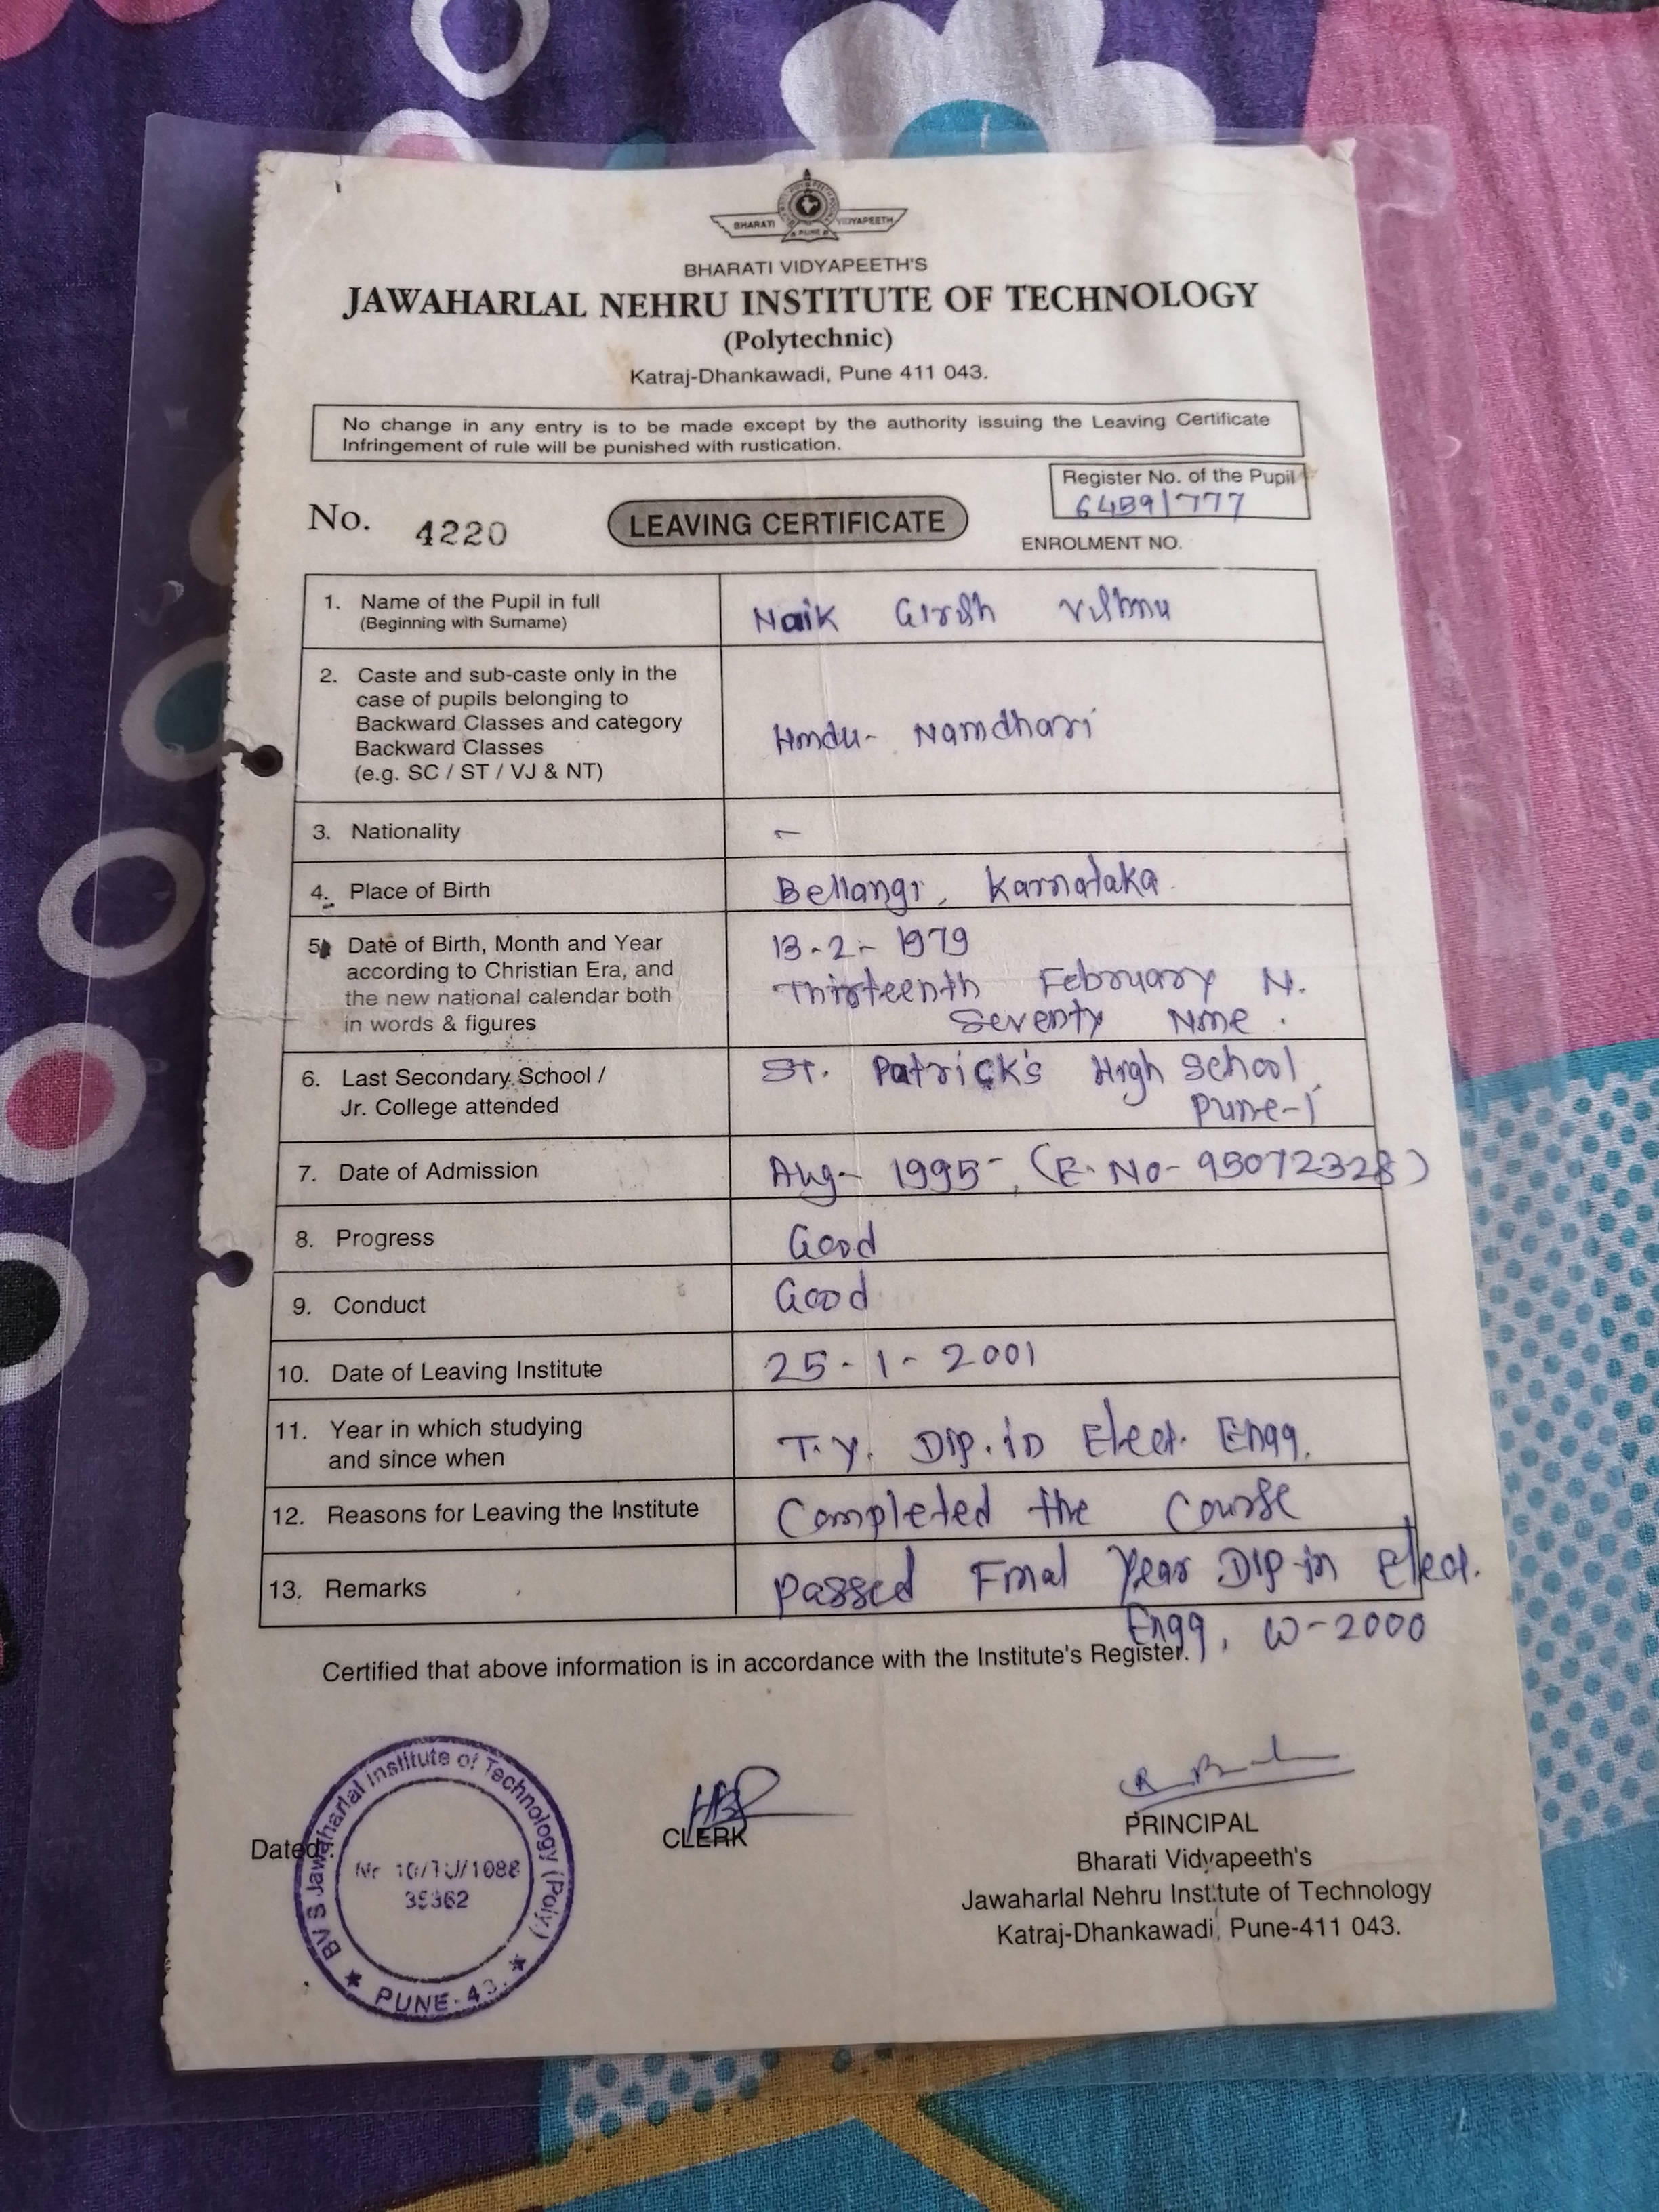 BHARATI VIDYAPEETH
PUNE
BHARATI VIDYAPEETH'S
JAWAHARLAL NEHRU INSTITUTE OF TECHNOLOGY
(Polytechnic)
Katraj-Dhankawadi, Pune 411 043.
No change in any entry is to be made except by the authority issuing the Leaving Certificate
Infringement of rule will be punished with rustication.
Register No. of the Pupil
6459/777
No. 4220
LEAVING CERTIFICATE
ENROLMENT NO.
1. Name of the Pupil in full
(Beginning with Surname)
Naik Girish Vishnu
2. Caste and sub-caste only in the
case of pupils belonging to
Backward Classes and category
Backward Classes
(e.g. SC / ST / VJ & NT)
Hindu- Namdhari
3. Nationality
-
4. Place of Birth
Bellangi, Karnataka.
5. Date of Birth, Month and Year
according to Christian Era, and
the new national calendar both
in words & figures
13-2-1979
Thirteenth February N.
Seventy Nine.
6. Last Secondary School /
Jr. College attended
St. Patrick's High School,
Pune-1
7. Date of Admission
Aug- 1995-, (E. No- 95072328)
8. Progress
Good
9. Conduct
Good
10. Date of Leaving Institute
25-1-2001
11. Year in which studying
and since when
T.Y. Dip. in Elect. Engg.
12. Reasons for Leaving the Institute
Completed the Course
13. Remarks
Passed Final Year Dip in Elect.
Engg, W-2000
Certified that above information is in accordance with the Institute's Register.
Dated :
BV S Jawaharlal Institute of Technology (Poly.)
PUNE-43.
35362
CLERK
PRINCIPAL
Bharati Vidyapeeth's
Jawaharlal Nehru Institute of Technology
Katraj-Dhankawadi, Pune-411 043.